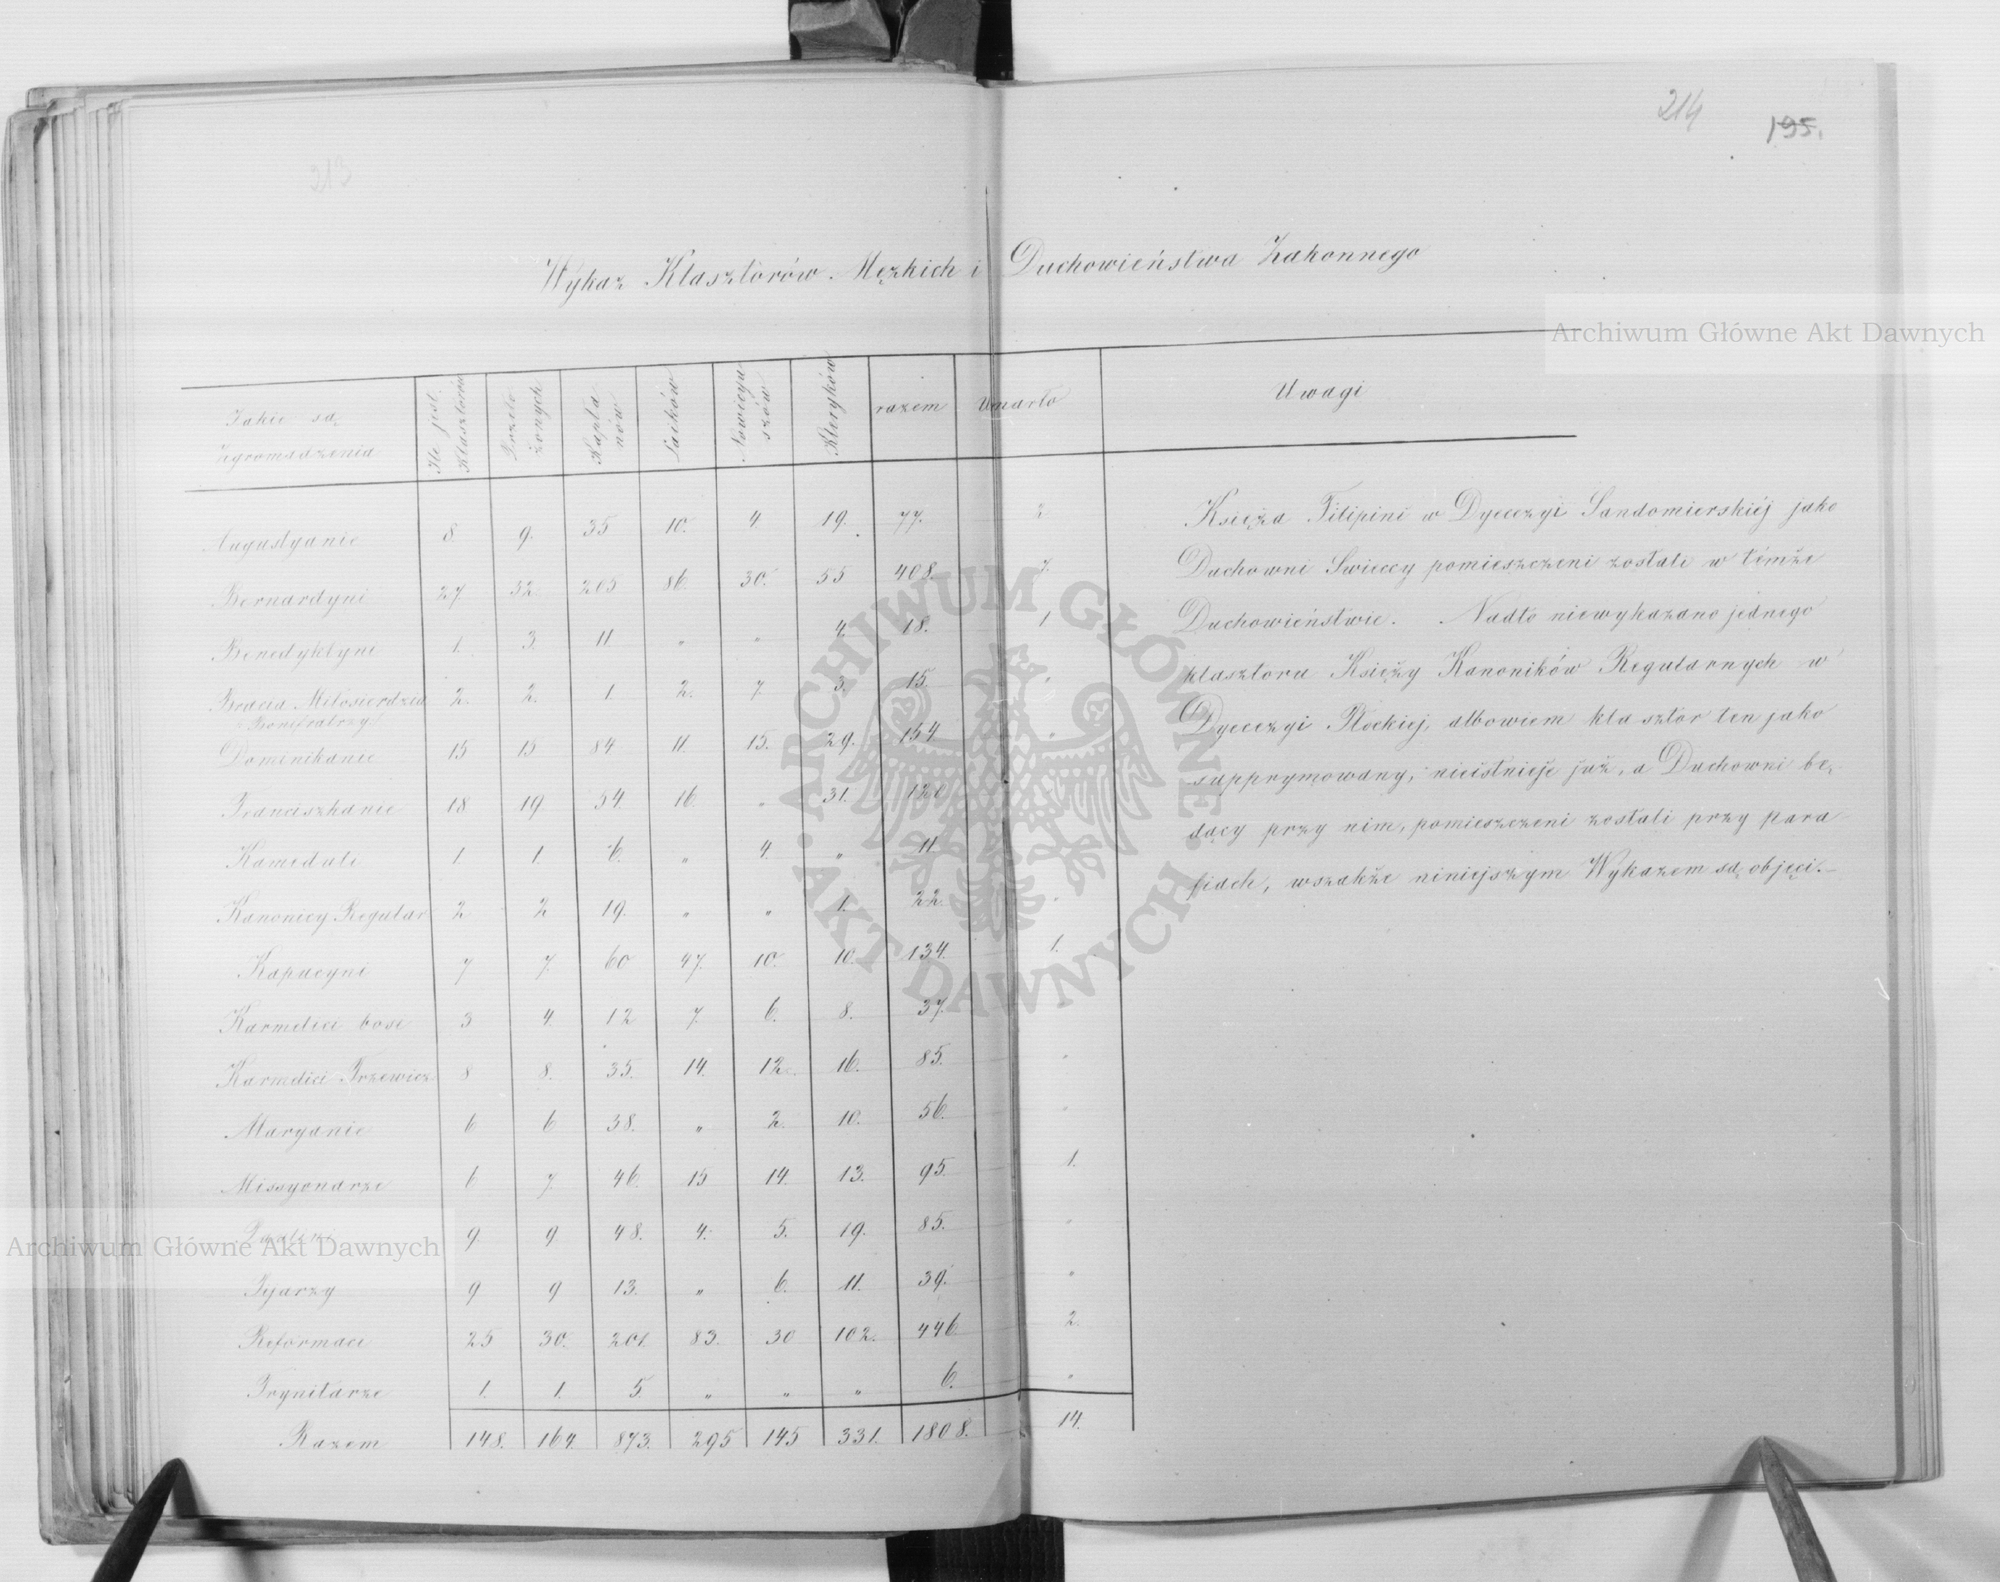 213
214
195.
Wykaz Klasztorów Męzkich i Duchowieństwa Zakonnego
Jakie są Zgromadzenia | Ile jest Klasztorów | Przełożonych | Kapłanów | Laików | Nowicyuszów | Kleryków | razem | Umarło | Uwagi
Augustyanie 8. 9. 35 10. 4. 19. 77. 2
Bernardyni 27. 32. 205 86 30. 55 408. 7.
Benedyktyni 1. 3. 11 " " 4. 18. 1
Bracia Miłosierdzia 2. 2. 1. 2. 7. 3. 15. "
Bonifratrzy
Dominikanie 15 15 84 11. 15. 29. 154 "
Franciszkanie 18 19 54. 16. " 31. 120
Kameduli 1. 1. 6. " 4. " 11.
Kanonicy Regular 2 2 19. " " 1. 22. "
Kapucyni 7 7. 60 47. 10. 10. 134. 1.
Karmelici bosi 3 4. 12 7. 6. 8. 37. "
Karmelici Trzewicz. 8 8. 35. 14. 12. 16. 85. "
Maryanie 6 6 38. " 2. 10. 56. "
Missyonarze 6 7. 46. 15 14. 13. 95. 1.
Paulini 9. 9 48. 4. 5. 19. 85. "
Pijarzy 9 9 13. " 6. 11. 39. "
Reformaci 25 30. 201. 83. 30 102. 446 2.
Trynitarze 1. 1. 5. " " " 6. "
Razem 148. 164. 873. 295 145 331. 1808. 14.
Księża Filipini w Dyecezyi Sandomierskiéj jako
Duchowni Swieccy pomieszczeni zostali w témże
Duchowieństwie. Nadto niewykazano jednego
klasztoru Księży Kanoników Regularnych w
Dyecezyi Płockiej, albowiem klasztor ten jako
supprymowany, nieistnieje już, a Duchowni bę-
dący przy nim, pomieszczeni zostali przy para
fiach, wszakże niniejszym Wykazem są objęci.–
Archiwum Główne Akt Dawnych
Archiwum Główne Akt Dawnych
ARCHIWUM GŁÓWNE AKT DAWNYCH